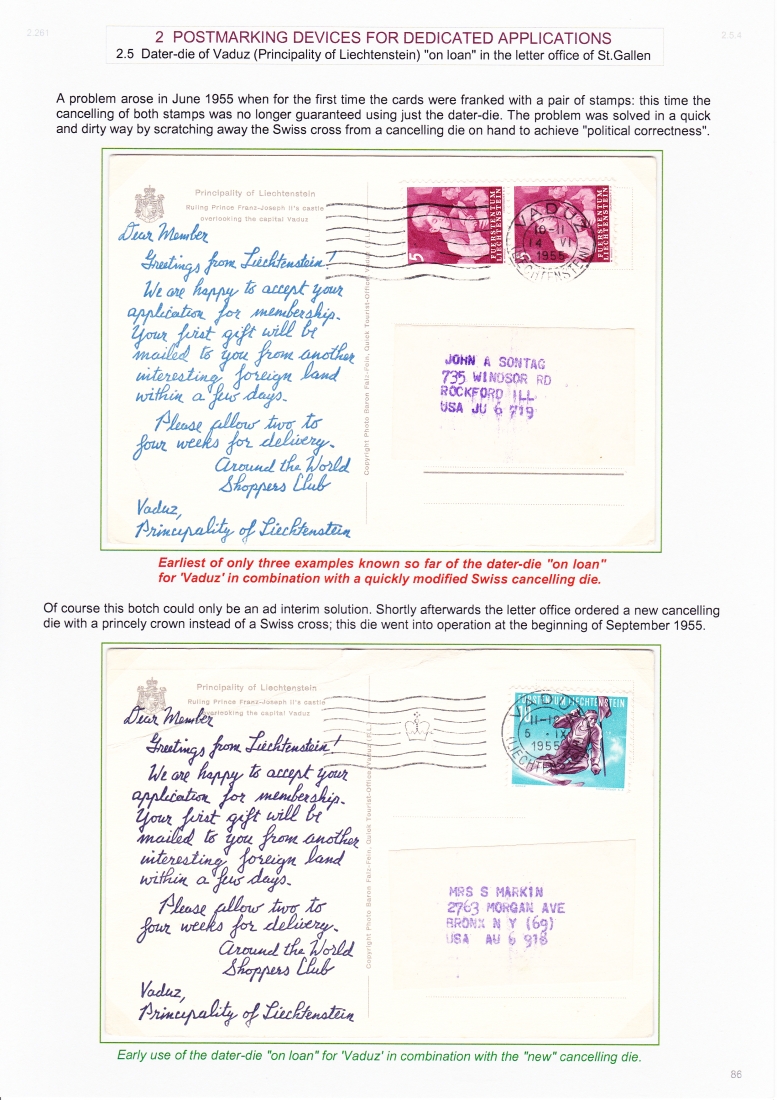 2.261
2.5.4
2 POSTMARKING DEVICES FOR DEDICATED APPLICATIONS
2.5 Dater-die of Vaduz (Principality of Liechtenstein) "on loan" in the letter office of St.Gallen
A problem arose in June 1955 when for the first time the cards were franked with a pair of stamps: this time the
cancelling of both stamps was no longer guaranteed using just the dater-die. The problem was solved in a quick
and dirty way by scratching away the Swiss cross from a cancelling die on hand to achieve "political correctness".
Principality of Liechtenstein
Ruling Prince Franz-Joseph II's castle
overlooking the capital Vaduz
Dear Member
Greetings from Liechtenstein!
We are happy to accept your
application for membership.
Your first gift will be
mailed to you from another
interesting foreign land
within a few days.
Please allow two to
four weeks for delivery.
Around the World
Shoppers Club
Vaduz,
Principality of Liechtenstein
Copyright Photo Baron Falz-Fein, Quick Tourist-Office, Vaduz (F.L.)
5
FUERSTENTUM
LIECHTENSTEIN
5
FUERSTENTUM
LIECHTENSTEIN
VADUZ
10-11
14 VI
1955
(LIECHTENSTEIN)
JOHN A SONTAG
735 WINDSOR RD
ROCKFORD ILL
USA JU 6 719
Earliest of only three examples known so far of the dater-die "on loan"
for 'Vaduz' in combination with a quickly modified Swiss cancelling die.
Of course this botch could only be an ad interim solution. Shortly afterwards the letter office ordered a new cancelling
die with a princely crown instead of a Swiss cross; this die went into operation at the beginning of September 1955.
Principality of Liechtenstein
Ruling Prince Franz-Joseph II's castle
overlooking the capital Vaduz
Dear Member
Greetings from Liechtenstein!
We are happy to accept your
application for membership.
Your first gift will be
mailed to you from another
interesting foreign land
within a few days.
Please allow two to
four weeks for delivery.
Around the World
Shoppers Club
Vaduz,
Principality of Liechtenstein
Copyright Photo Baron Falz-Fein, Quick Tourist-Office, Vaduz (F.L.)
FÜRSTENTUM LIECHTENSTEIN
10
VADUZ
11-12
5 · IX
1955
MRS S MARKIN
2763 MORGAN AVE
BRONX N Y (69)
USA AU 6 918
Early use of the dater-die "on loan" for 'Vaduz' in combination with the "new" cancelling die.
86